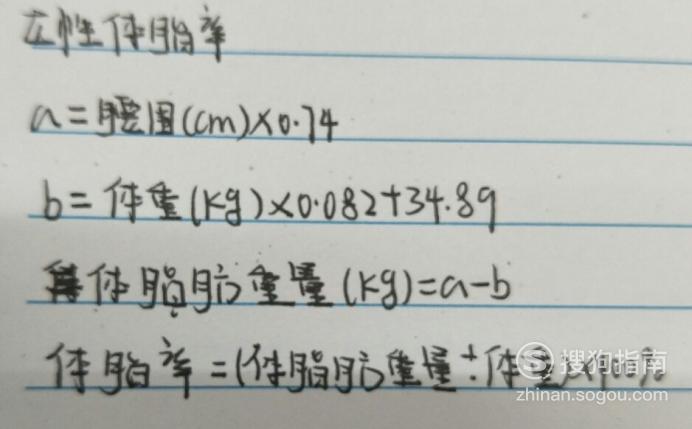 女性体脂率
a=腰围(cm)×0.74
b=体重(kg)×0.082+34.89
体脂肪重量(kg)=a-b
体脂率=(体脂肪重量÷体重)×100%
搜狗指南
zhinan.sogou.com